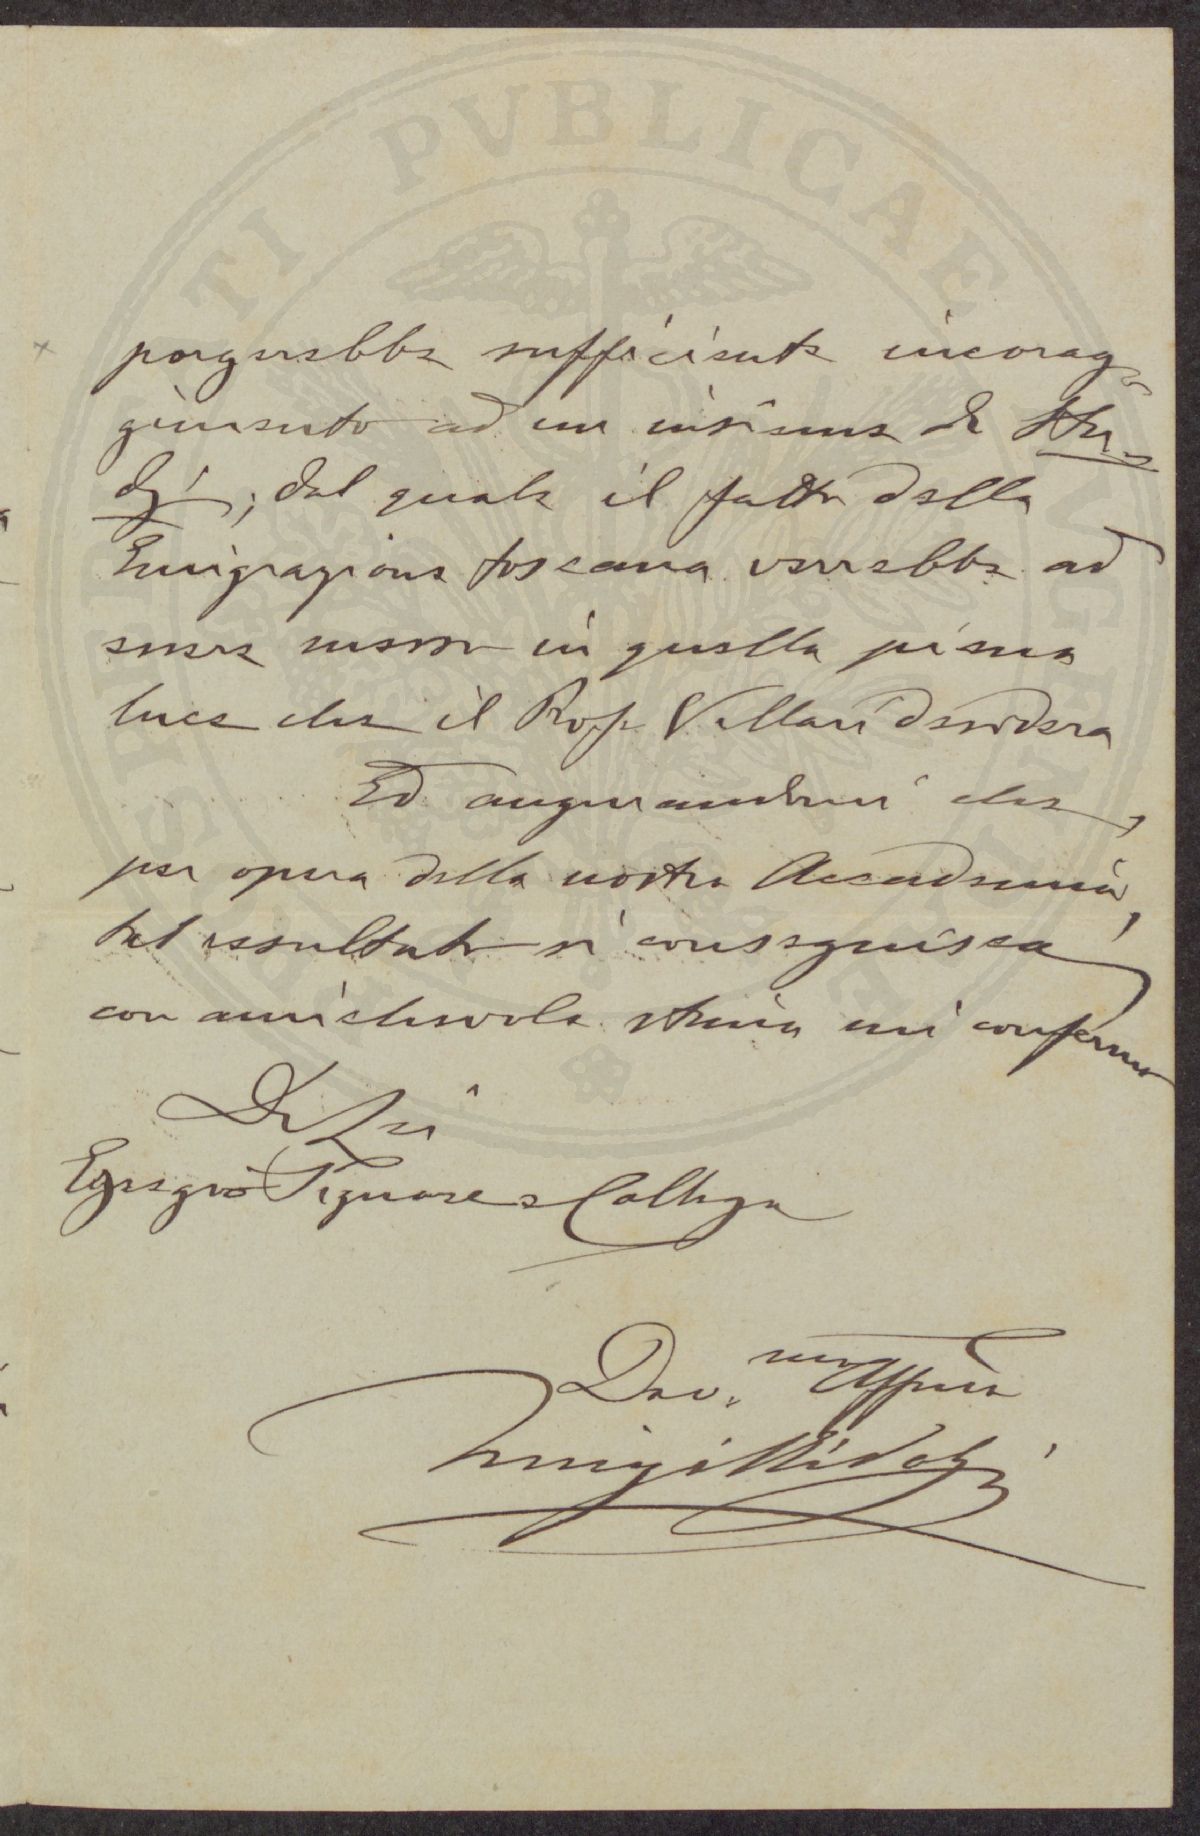 porgerebbe sufficiente incorag-
giamento ad un insieme di Stu-
dj; dal quale il fatto della
Emigrazione toscana verrebbe ad
essere messo in quella piena
luce che il Prof. Villari desidera
Ed augurandomi che,
per opera della nostra Accademia,
tal resultato si conseguisca
con amichevole stima mi confermo
Di Lei
Egregio Signore e Collega
Dev.mo Affmo
Luigi Ridolfi
PVBLICAE